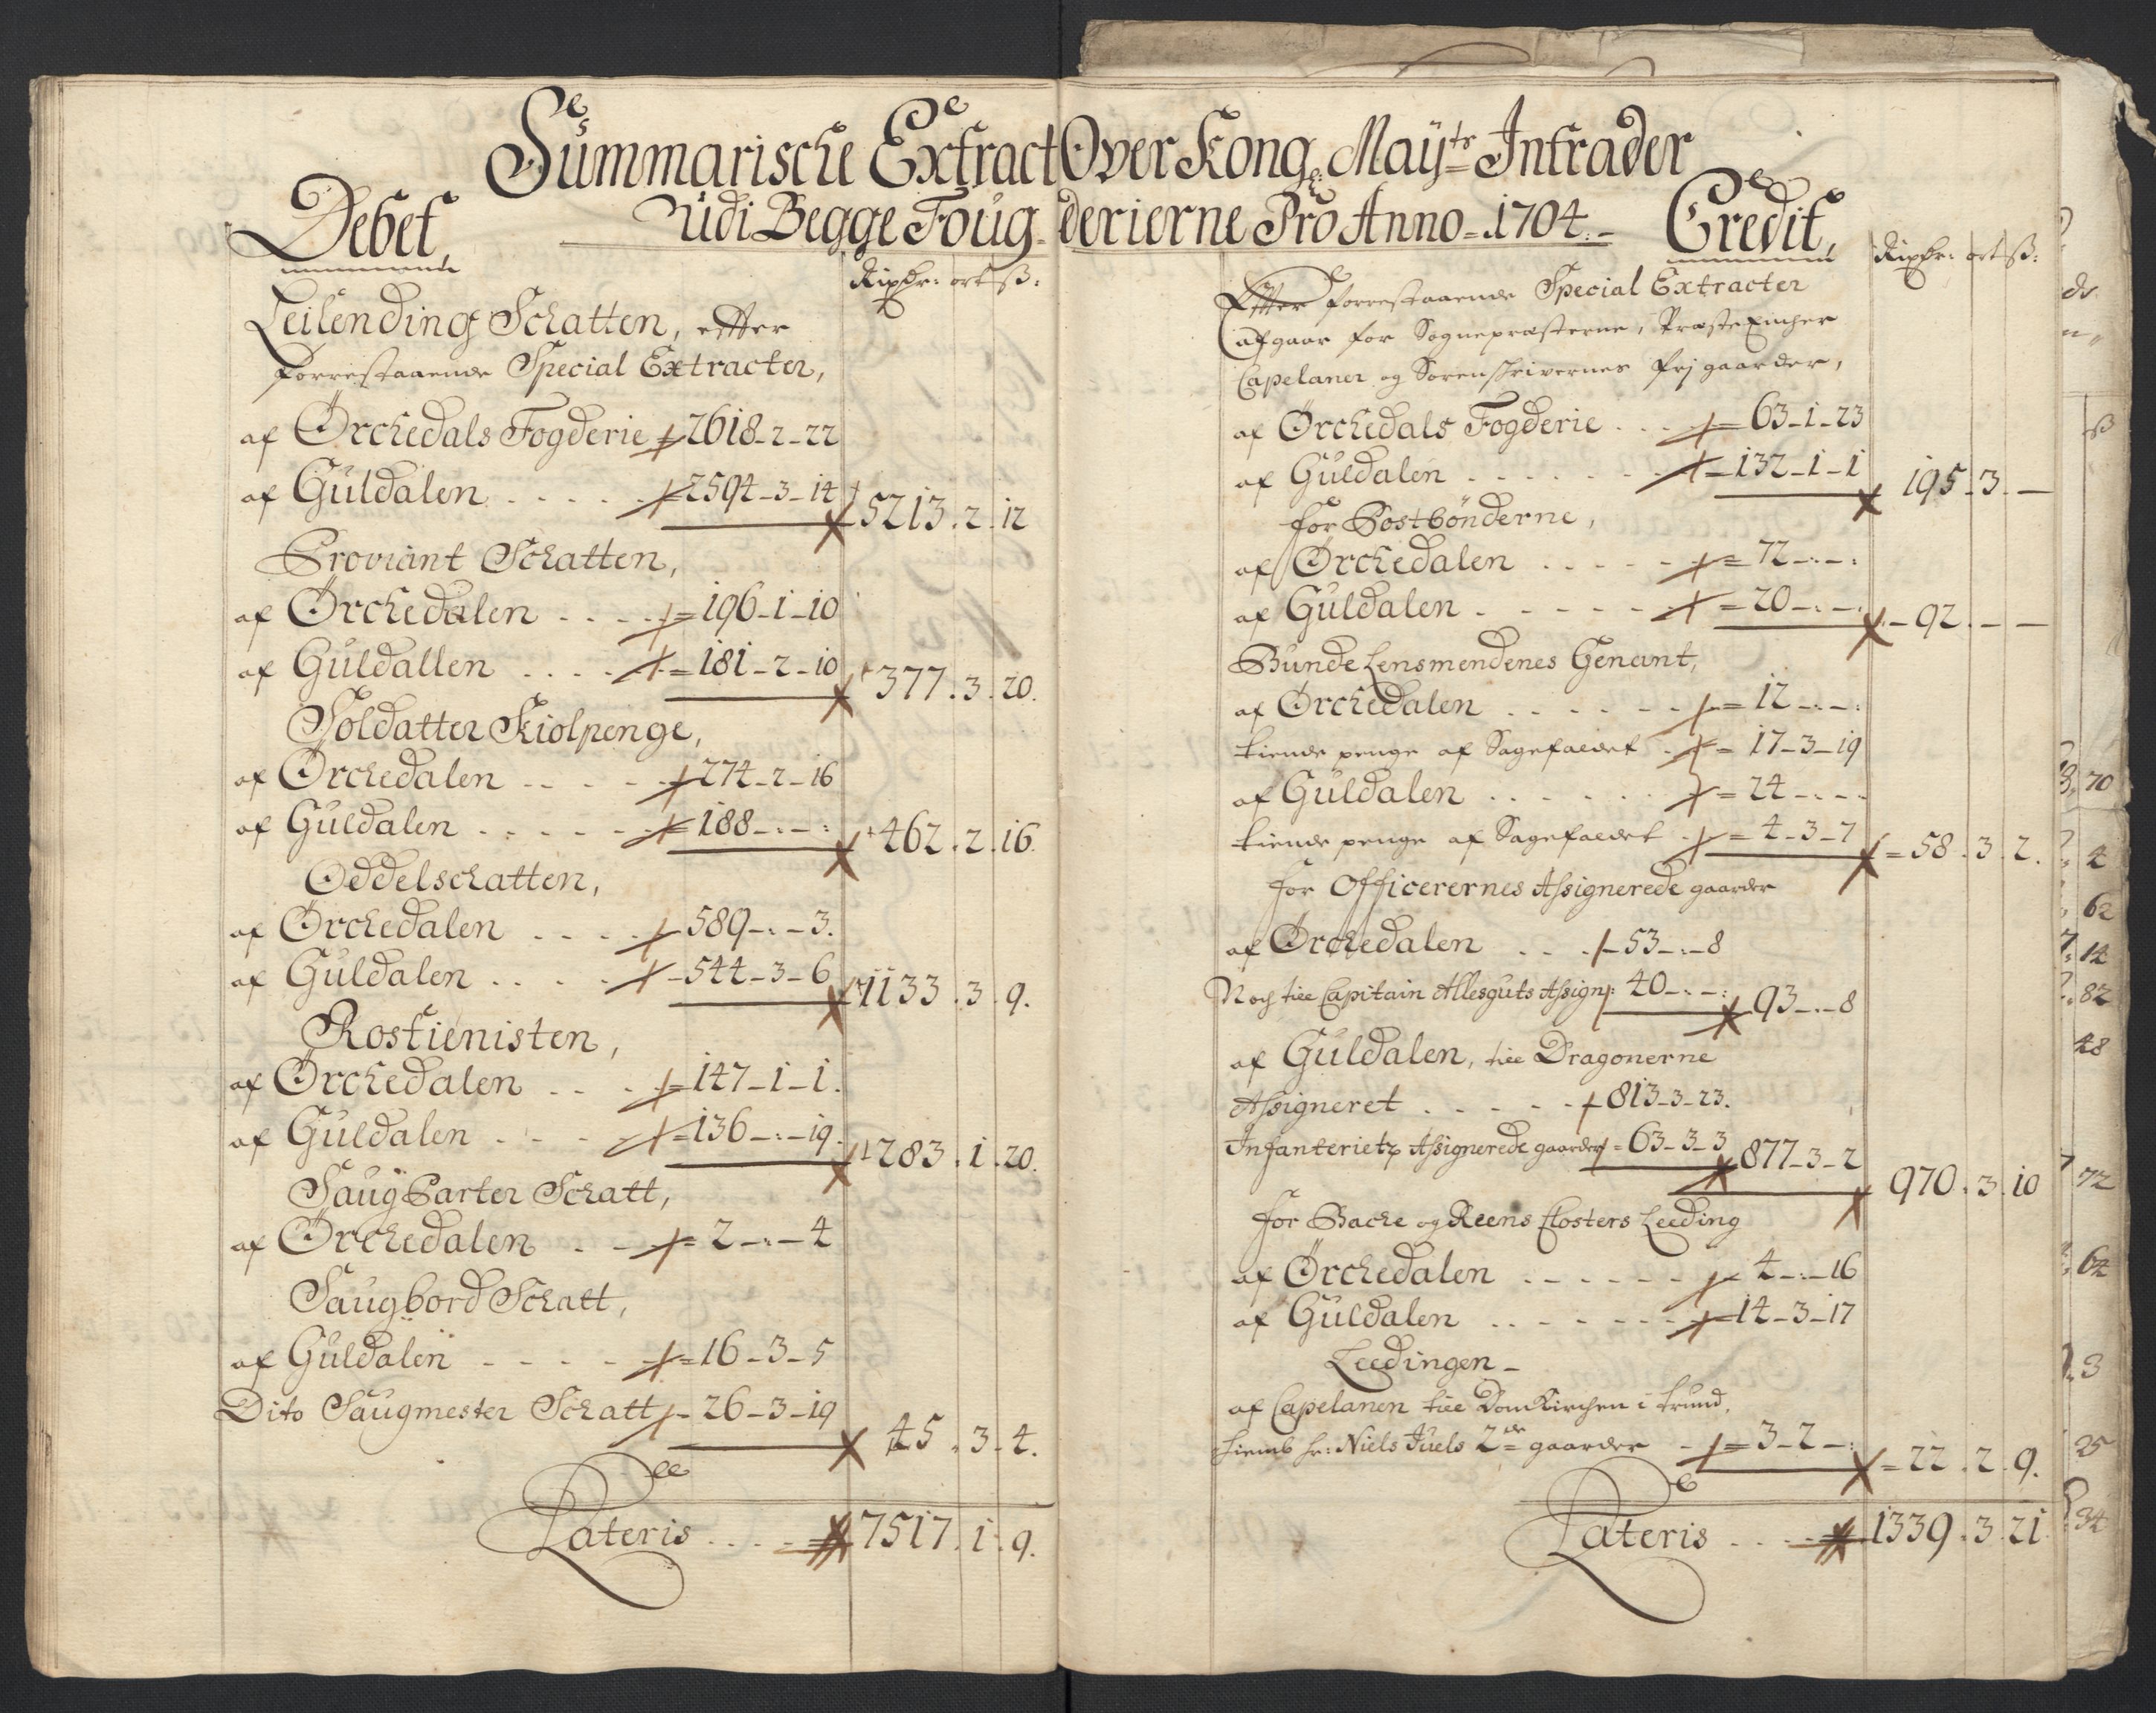 Summarische Extract Over Kong: May:ts Intrader
udi Begge Foug-derierne Pro Anno 1704.
Debet,
Rixdr: ort ß:
Leilending Schatten, efter
forrestaaende Special Extracter,
af Örchedals Fogderie = 2618-2-22
af Guldalen . . . . . = 2594-3-14 5213.2.12
Proviant Schatten,
af Örchedalen . . . . = 196-1-10
af Guldallen . . . . = 181-2-10 377.3.20.
Soldatter Kiolpenge,
af Örchedalen . . . . 274-2-16
af Guldalen . . . . . = 188-:-: 462.2.16.
Oddelschatten,
af Örchedalen . . . . 589-:-3.
af Guldalen . . . . -544-3-6 1133.3.9.
Rostienisten,
af Örchedalen . . . = 147-1-1.
af Guldalen . . . . = 136-:-19. 283.1.20.
Saug Parter Schatt,
af Örchedalen . . = 2-:-4
Saugbord Schatt,
af Guldalen - - - - = 16-3-5
Dito Saugmester Schatt - 26-3-19 45.3-4.
Lateris . . . . 7517.1.9.
Credit,
Rixdr: ort ß:
Efter forrestaaende Special Extracter
afgaar for Sognepræsterne, Præste Encher
Capelaner og Sorenskrivernes frj gaarder,
af Örchedals Fogderie . . . = 63-1-23
af Guldalen . . . . . . = 132-1-1 195.3.—
for Postbönderne,
af Örchedalen . . . . . = 72-:-:
af Guldalen . . . . . = 20-:-: 92.—.—
Bunde Lensmendenes Genant,
af Örchedalen . . . . . . = 12-:-:
tiende penge af Sagefaldet . = 17-3-19
af Guldalen . . . . . . = 24-:-:
tiende penge af Sagefaldet . = 4-3-7 = 58.3.2.
for Officerernes Assignerede gaarder
af Örchedalen . . . -53-:-8
Noch till Capitain Allesguts Assign: 40-:-: 93-:-8
af Guldalen, till Dragonerne
Assigneret . . . . . . 813-3-23.
Infanteriets Assignerede gaarder = 63-3-3 877-3-2 970.3.10
for Bache og Reens Closters Leeding
af Örchedalen . . . . . . 4-:-16
af Guldalen . . . . . . . 14-3-17
Leedingen -
af Capelanen till Dom Kirchen i trund,
hiemb hr: Niels Juels 2de gaarder - = 3-2-: = 22.2.9.
Lateris . . . . 1339.3.21.
ß
70
4
62
14
82
48
72
64
3
25
34